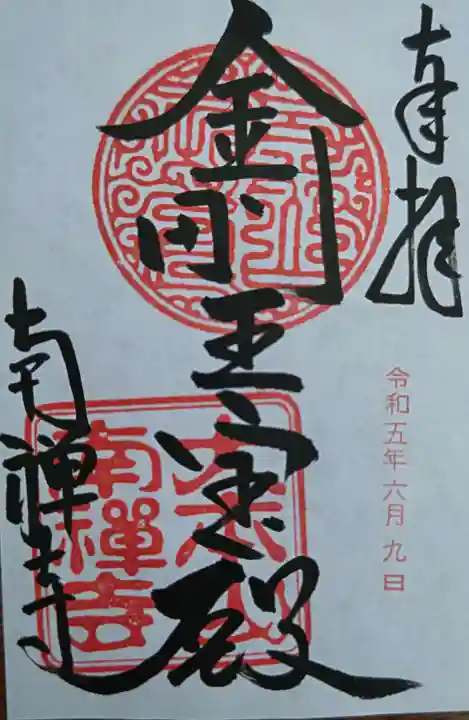 奉拝
令和五年六月九日
金剛王宝殿
南禅寺
太本山
南禪寺